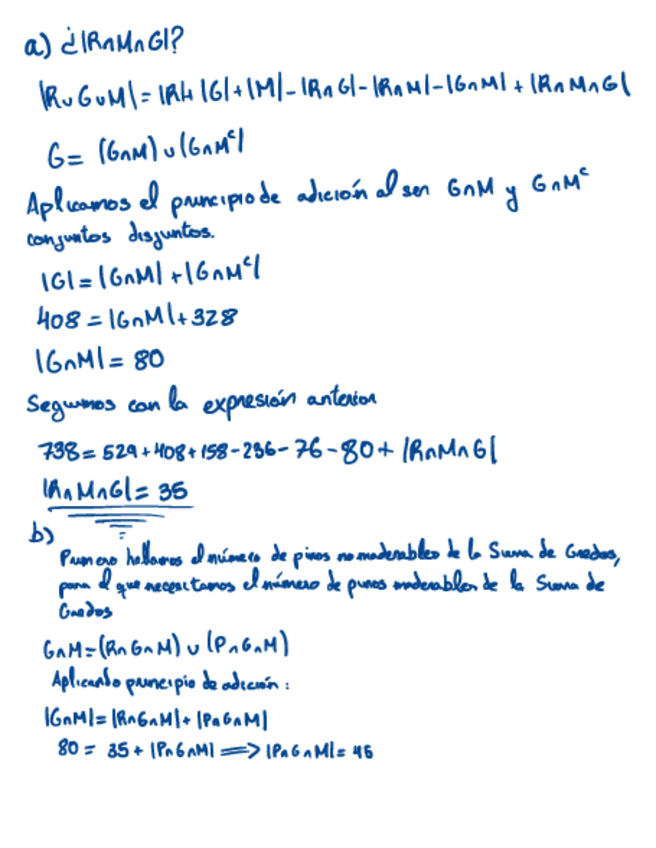 a) ¿|R∩M∩G|?
|R∪G∪M| = |R|+|G|+|M|-|R∩G|-|R∩M|-|G∩M|+|R∩M∩G|
G = (G∩M)∪(G∩Mᶜ)
Aplicamos el principio de adición al ser G∩M y G∩Mᶜ
conjuntos disjuntos.
|G| = |G∩M| + |G∩Mᶜ|
408 = |G∩M| + 328
|G∩M| = 80
Seguimos con la expresión anterior
738 = 529+408+158-236-76-80+ |R∩M∩G|
|R∩M∩G| = 35
b)
Primero hallamos el número de pinos no maderables de la Sierra de Gredos,
para el que necesitamos el número de pinos maderables de la Sierra de
Gredos
G∩M = (R∩G∩M) ∪ (P∩G∩M)
Aplicando principio de adición:
|G∩M| = |R∩G∩M| + |P∩G∩M|
80 = 35 + |P∩G∩M| ⟹ |P∩G∩M| = 45